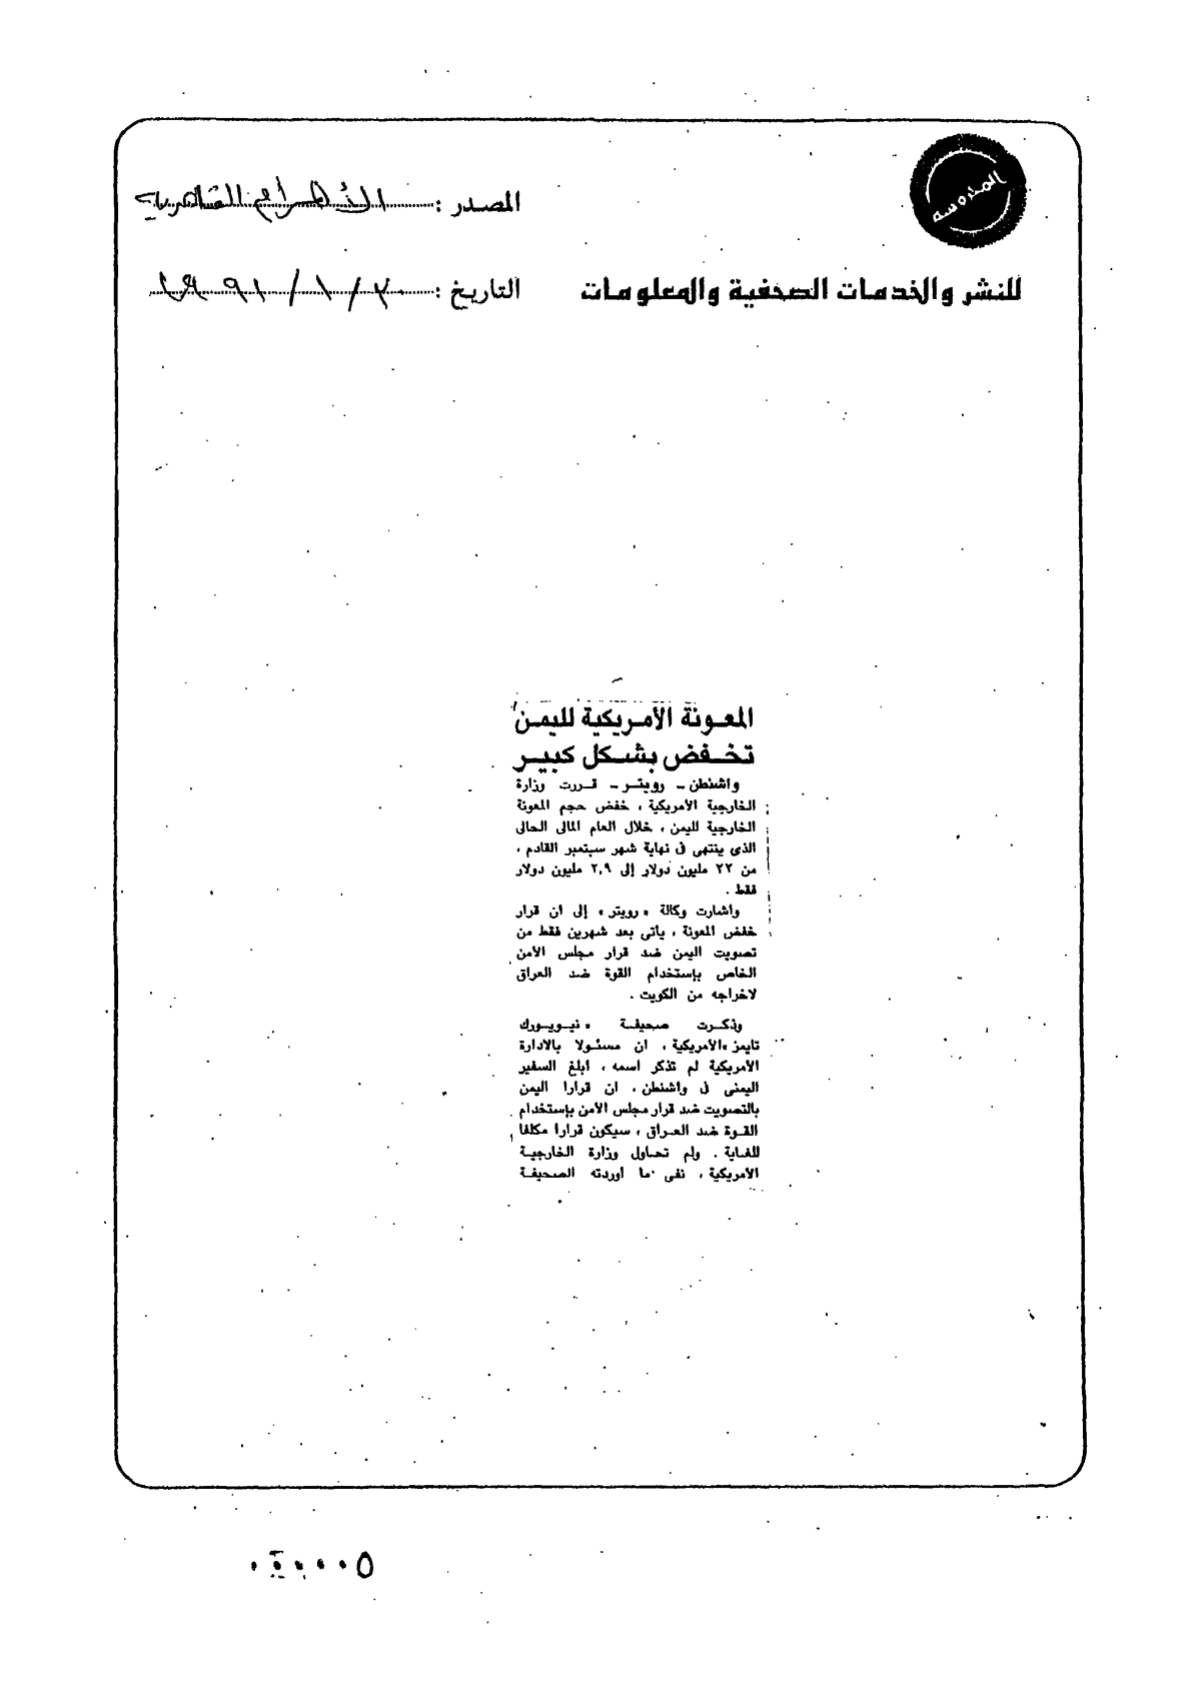 المحروسة
المصدر : الأهرام القاهرية
للنشر والخدمات الصحفية والمعلومات
التاريخ : ٢٠ / ١ / ١٩٩١
المعونة الأمريكية لليمن
تخفض بشكل كبير
واشنطن - رويتر - قررت وزارة
الخارجية الأمريكية ، خفض حجم المعونة
الخارجية لليمن ، خلال العام المالى الحالى
الذى ينتهى فى نهاية شهر سبتمبر القادم ،
من ٢٢ مليون دولار إلى ٢,٩ مليون دولار
فقط .
واشارت وكالة « رويتر » إلى ان قرار
خفض المعونة ، ياتى بعد شهرين فقط من
تصويت اليمن ضد قرار مجلس الأمن
الخاص بإستخدام القوة ضد العراق
لاخراجه من الكويت .
وذكرت صحيفة « نيويورك
تايمز » الأمريكية ، ان مسئولا بالادارة
الأمريكية لم تذكر اسمه ، ابلغ السفير
اليمنى فى واشنطن ، ان قرارا اليمن
بالتصويت ضد قرار مجلس الأمن بإستخدام
القوة ضد العراق ، سيكون قرارا مكلفا
للغاية . ولم تحاول وزارة الخارجية
الأمريكية ، نفى ما اوردته الصحيفة